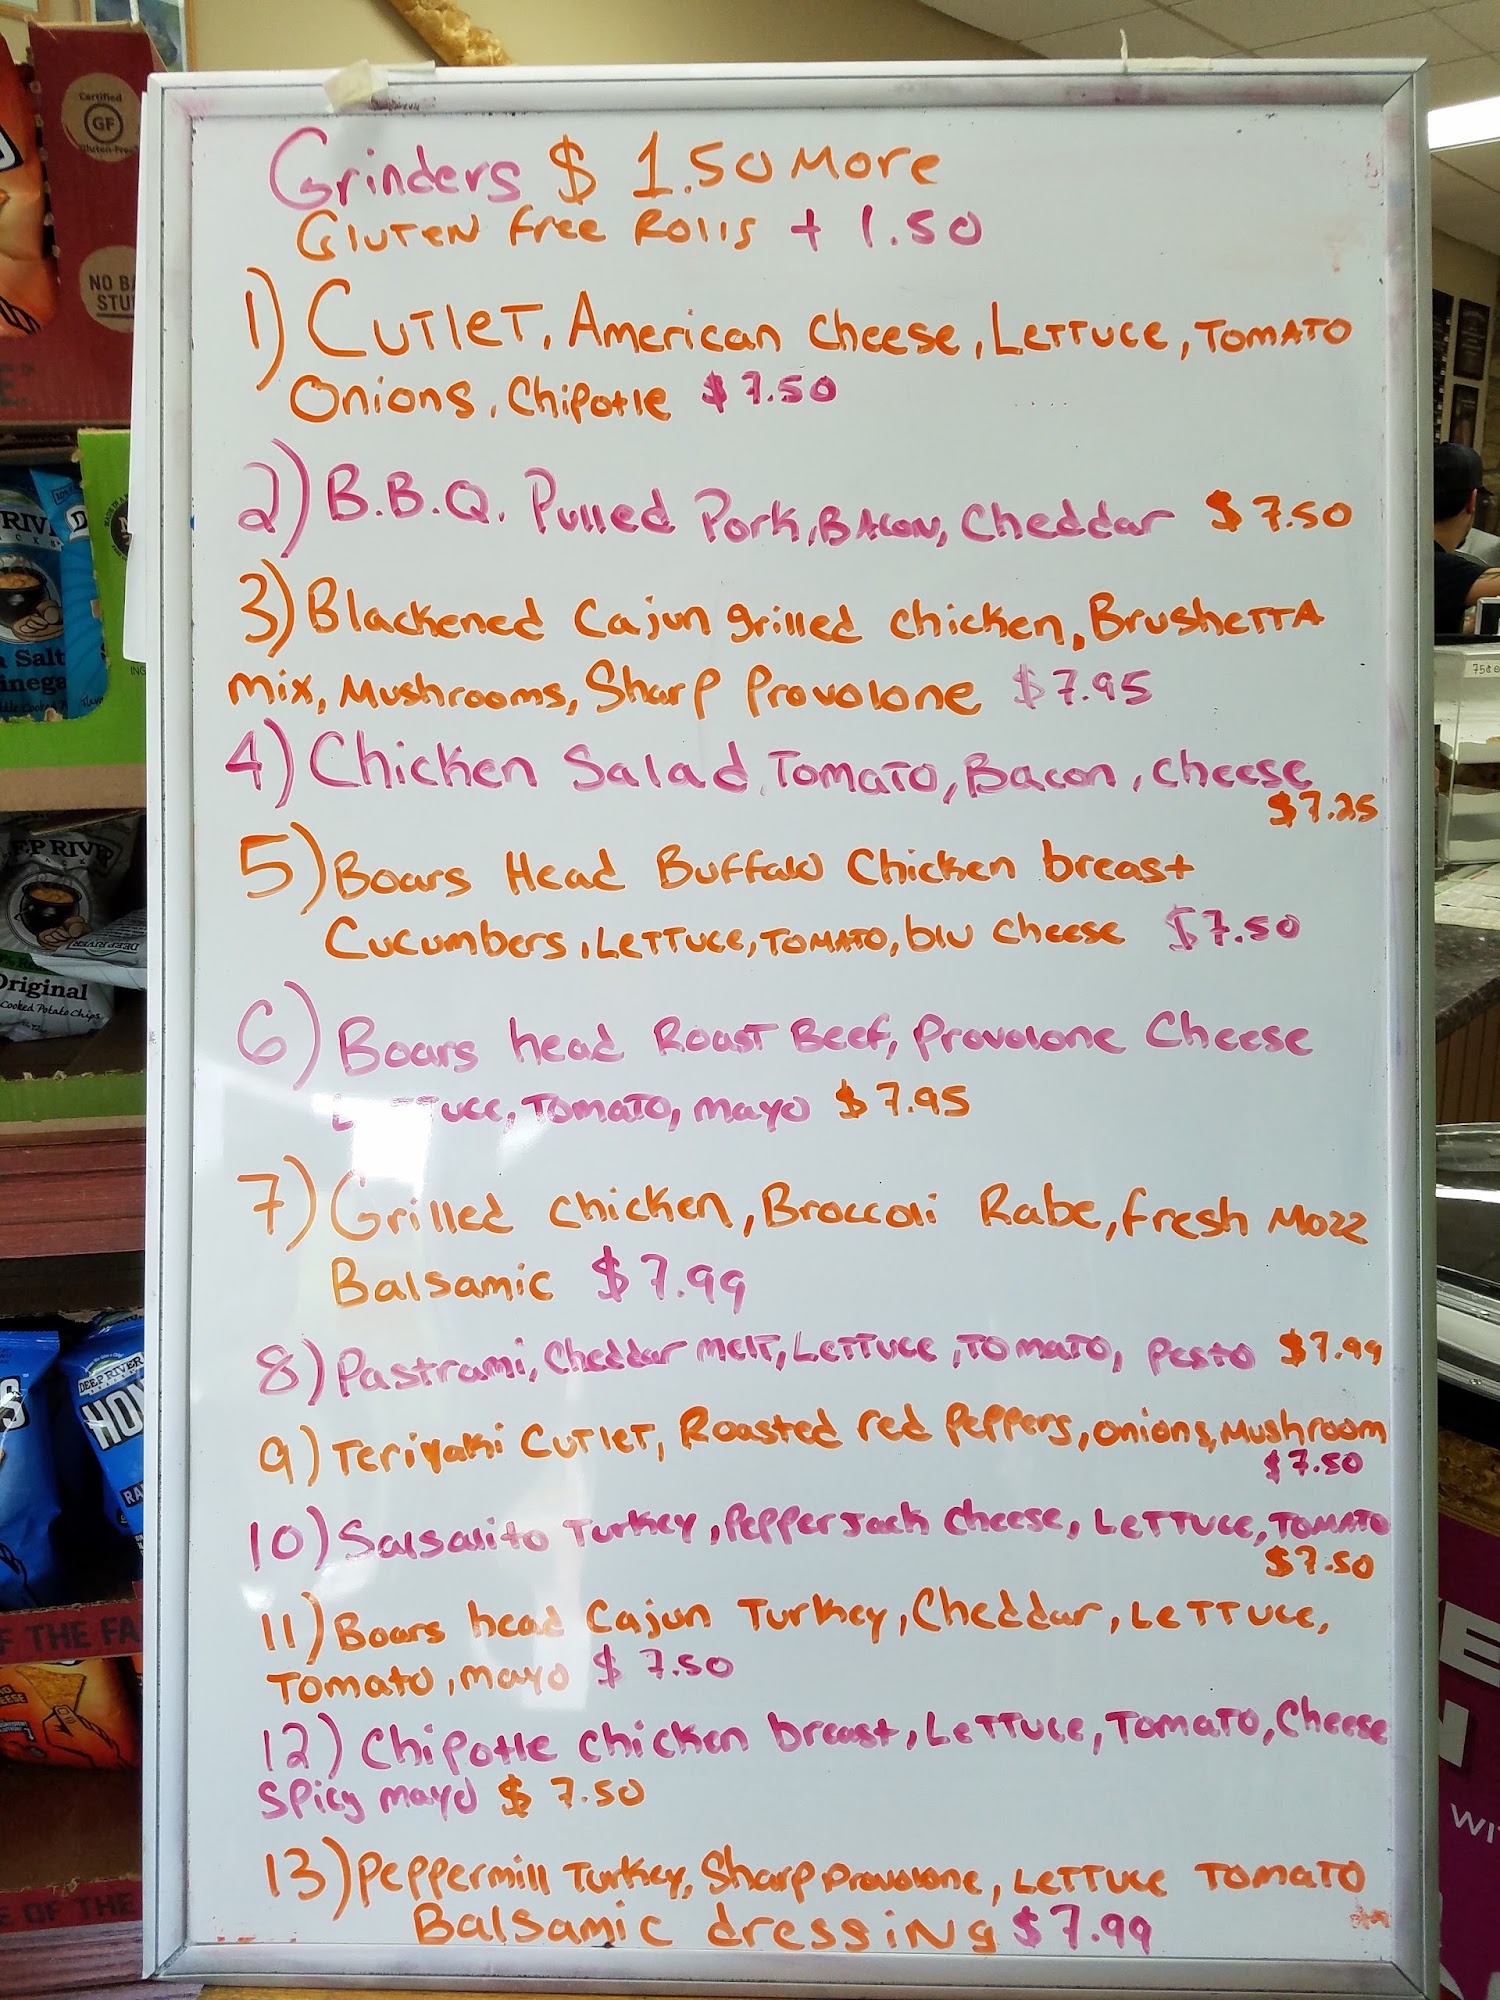 Grinders $ 1.50 More
Gluten Free Rolls + 1.50
1) Cutlet, American Cheese, Lettuce, Tomato
Onions, Chipotle $7.50
2) B.B.Q. Pulled Pork, Bacon, Cheddar $7.50
3) Blackened Cajun grilled chicken, Brushetta
mix, Mushrooms, Sharp Provolone $7.95
4) Chicken Salad, Tomato, Bacon, cheese
$7.25
5) Boars Head Buffalo Chicken breast
Cucumbers, Lettuce, Tomato, blu cheese $7.50
6) Boars head Roast Beef, Provolone Cheese
Lettuce, Tomato, mayo $7.95
7) Grilled chicken, Broccoli Rabe, fresh Mozz
Balsamic $7.99
8) Pastrami, Cheddar melt, Lettuce, Tomato, Pesto $7.99
9) Teriyaki Cutlet, Roasted red Peppers, onions, Mushroom
$7.50
10) Salsalito Turkey, Pepper Jack cheese, Lettuce, Tomato
$7.50
11) Boars head Cajun Turkey, Cheddar, Lettuce,
Tomato, mayo $7.50
12) Chipotle chicken breast, Lettuce, Tomato, Cheese
Spicy mayo $7.50
13) Peppermill Turkey, Sharp Provolone, Lettuce Tomato
Balsamic dressing $7.99
Certified
GF
Gluten-Free
NO BA
STU
RIV
Salt
inega
EP RIVER
DEEP RIVER
Original
Cooked Potato Chips
DEEP RIVER
HON
RA
F THE FA
E OF THE
75¢
WI